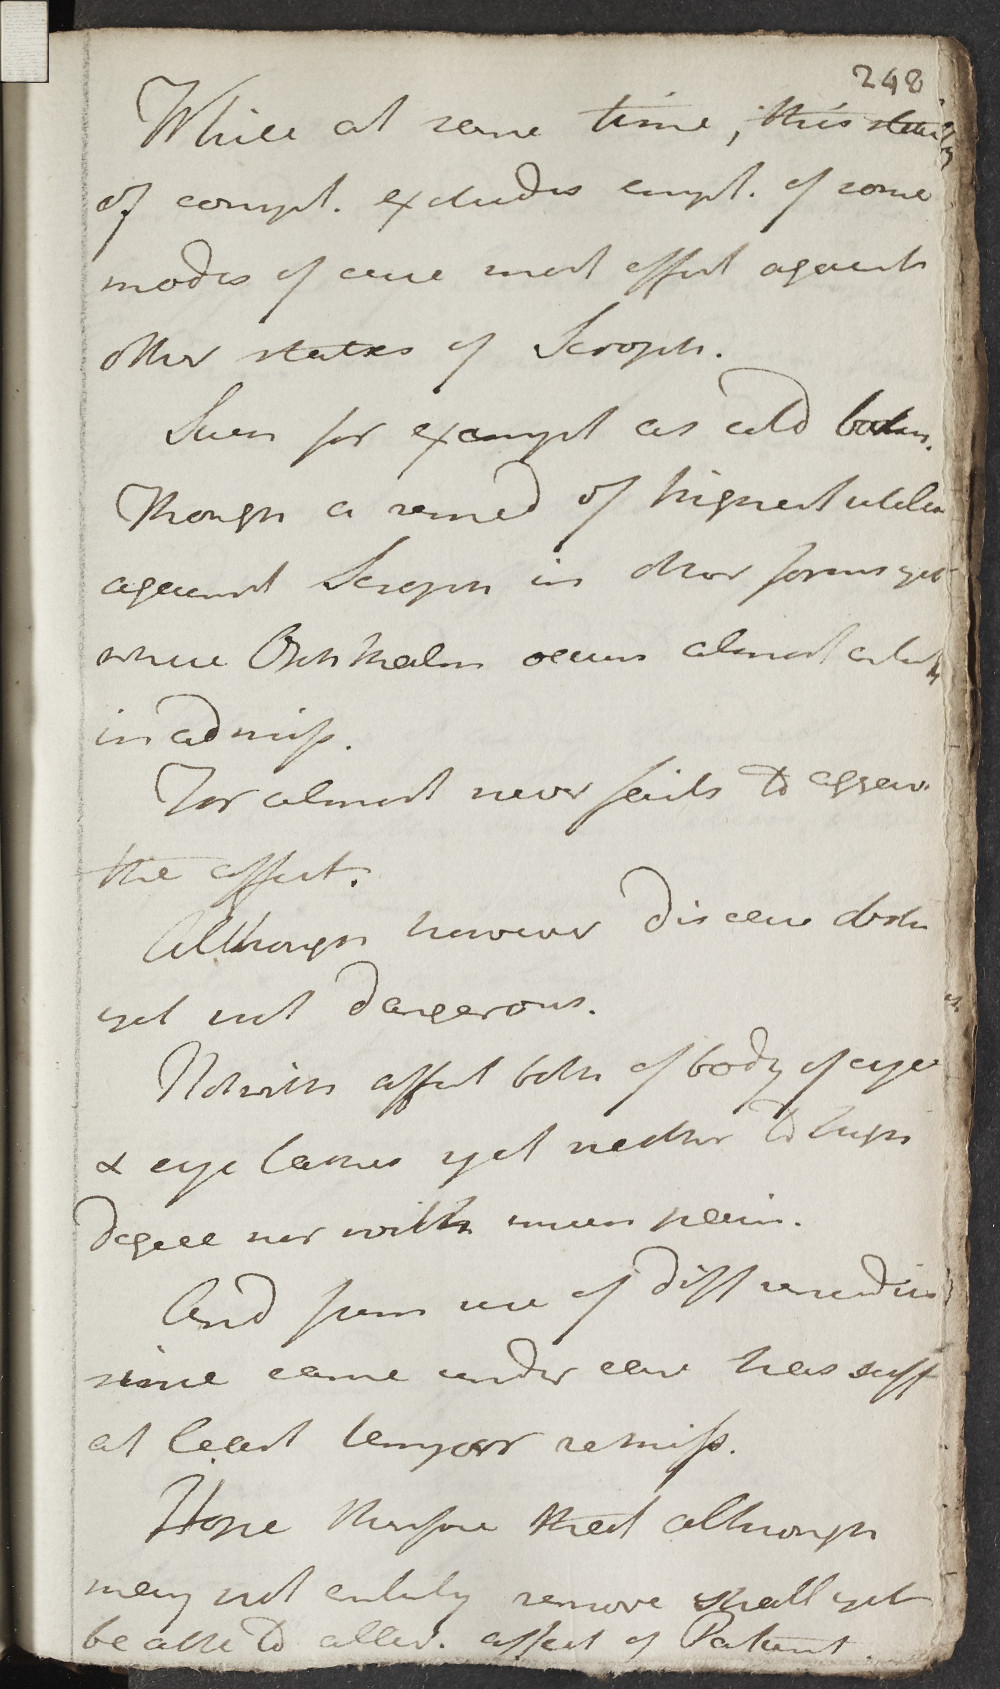 248
While at same time, this state
of compt. excludes empl. of some
modes of cure most effect against
other states of Scroph.
Such for exampl as cold bath.
Though a remed of highest utility
against Scroph in other forms yet
where Ophthalm occurs almost entirely
inadmiss.
For almost never fails to aggrav.
the affect.
Although however disease obstin
yet not dangerous.
Notwith affect both of body of eye
& eye lashes yet neither to high
degree nor with much pain.
And from use of diff remedies
since came under care has suff
at least tempor remiss.
Hope therefore that although
may not entirely remove shall yet
be able to allev. affect of Patient.